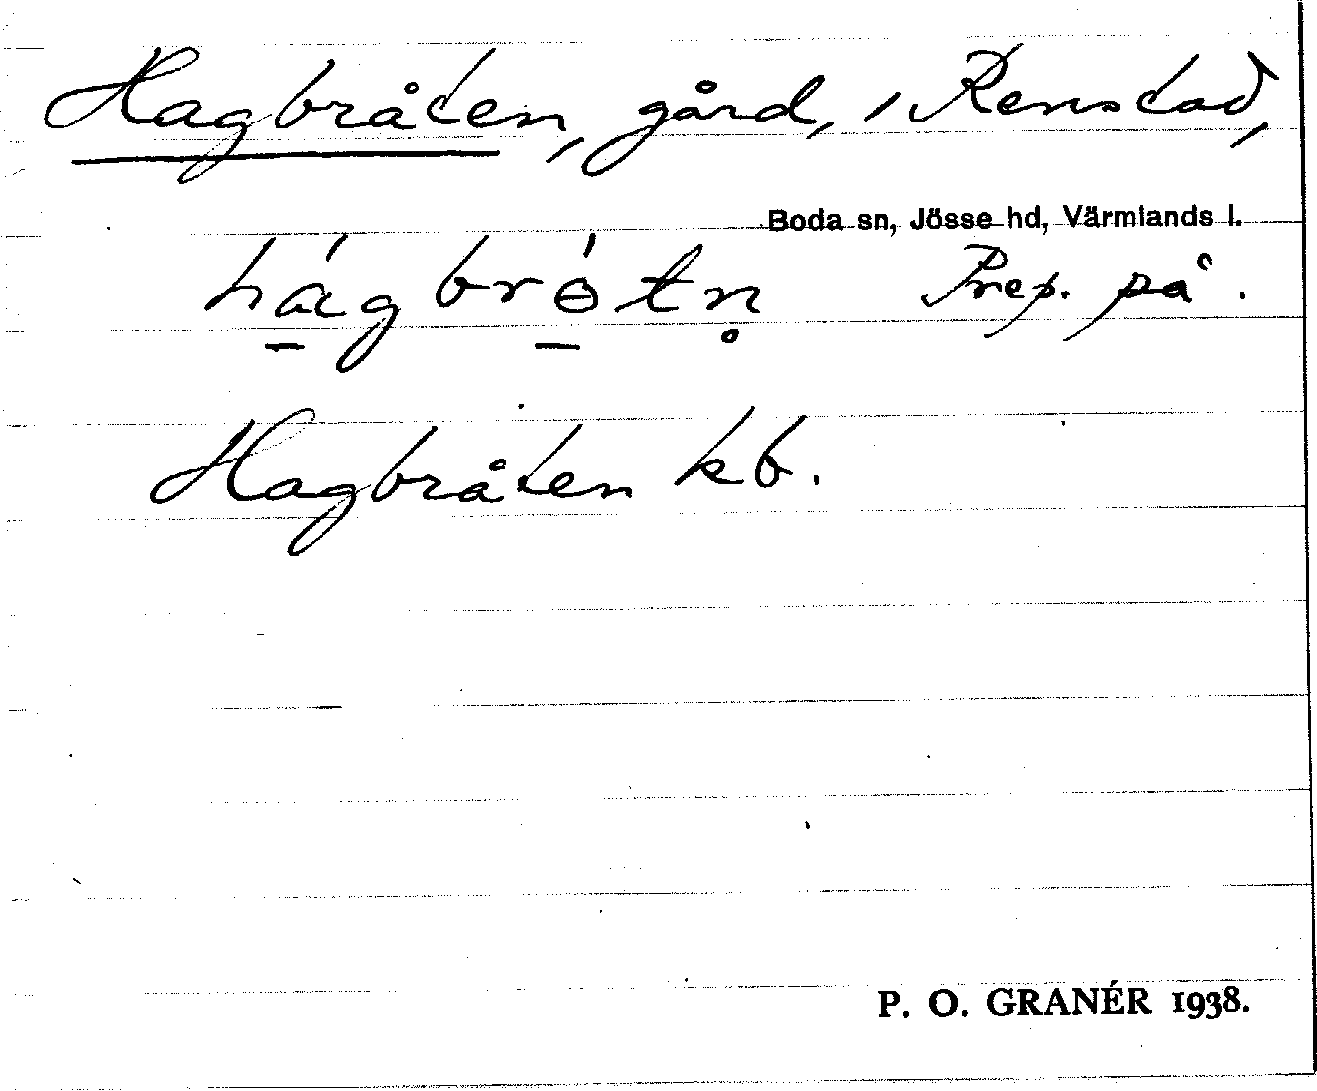 Hagbråten, gård, i Renstad,
Boda sn, Jösse hd, Värmlands l.
hágbrótn̥ Prep. på.
Hagbråten kb.
P. O. GRANÉR 1938.